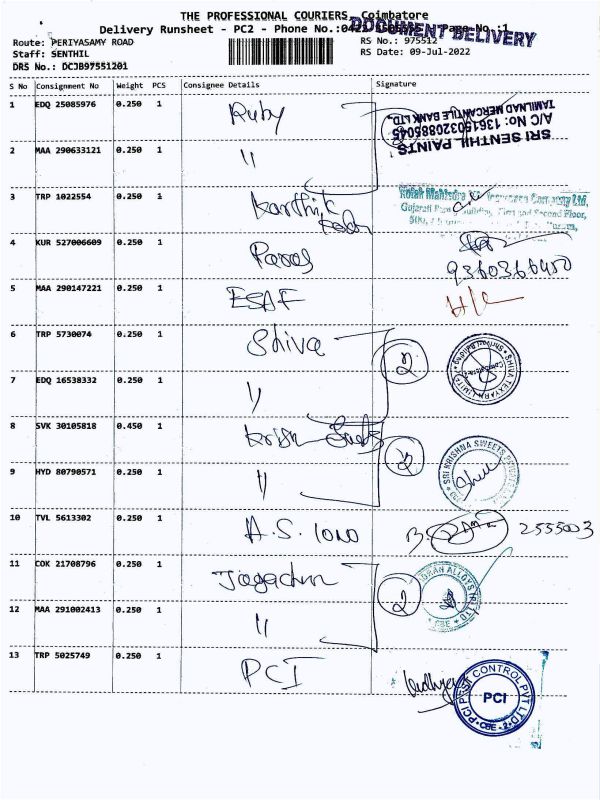 THE PROFESSIONAL COURIERS, Coimbatore
Delivery Runsheet - PC2 - Phone No.:0422 Page No.:1
DOCUMENT DELIVERY
Route: PERIYASAMY ROAD
RS No.: 975512
Staff: SENTHIL
RS Date: 09-Jul-2022
DRS No.: DCJB97551201
S No Consignment No Weight PCS Consignee Details Signature
1 EDQ 25085976 0.250 1 Ruby
SRI SENTHIL PAINTS
A/C No: 136150320885045
TAMILNAD MERCANTILE BANK LTD.,
2 MAA 290633121 0.250 1 "
3 TRP 1022554 0.250 1 Karthik
Kotak Mahindra Insurance Company Ltd,
Gujarati Building, First and Second Floor,
4 KUR 527006609 0.250 1
9360366450
5 MAA 290147221 0.250 1 ESAF
6 TRP 5730074 0.250 1 Shiva 2
SHIVA TEXYARN LIMITED
7 EDQ 16538332 0.250 1 "
8 SVK 30105818 0.450 1 Krish 2
SRI KRISHNA SWEETS
9 HYD 80790571 0.250 1 "
10 TVL 5613302 0.250 1 A.S. 2555003
11 COK 21708796 0.250 1 2
ALLOYS
CBE
12 MAA 291002413 0.250 1 "
13 TRP 5025749 0.250 1 PCI
PCI PEST CONTROL PVT LTD
PCI
CBE - 2